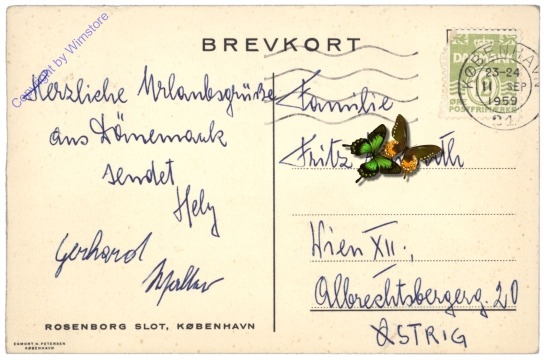 Copyright by Wimstore
BREVKORT
Herzliche Urlaubsgrüße
aus Dänemark
sendet
Hely
Gerhard
Familie
Fritz
Wien XII.,
Albrechtsbergerg. 20
ØSTRIG
DANMARK
KØBENHAVN
23-24
11 SEP
1959
ROSENBORG SLOT, KØBENHAVN
EGMONT H. PETERSEN
KØBENHAVN